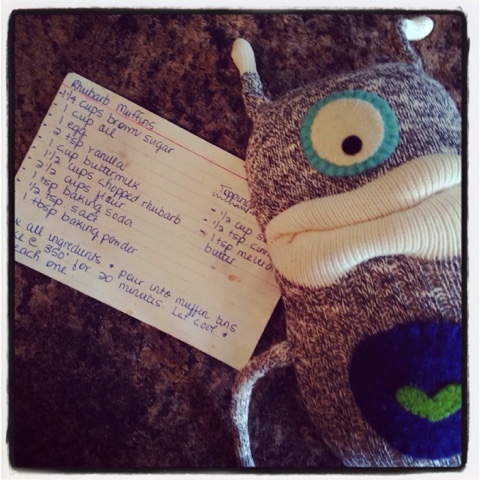 Rhubarb Muffins
- 1 1/4 cups brown sugar
- 1 cup oil
- 1 egg
- 2 tsp vanilla
- 1 cup buttermilk
- 1 1/2 cups chopped rhubarb
- 2 1/2 cups flour
- 1 tsp baking soda
- 1/2 tsp salt
- 1 tbsp baking powder
all ingredients • pour into muffin tins
@ 350° for 20 minutes. Let cool &
each one!
Topping
- 1/2 cup
- 1/2 tsp
- 1 tsp melted
butter